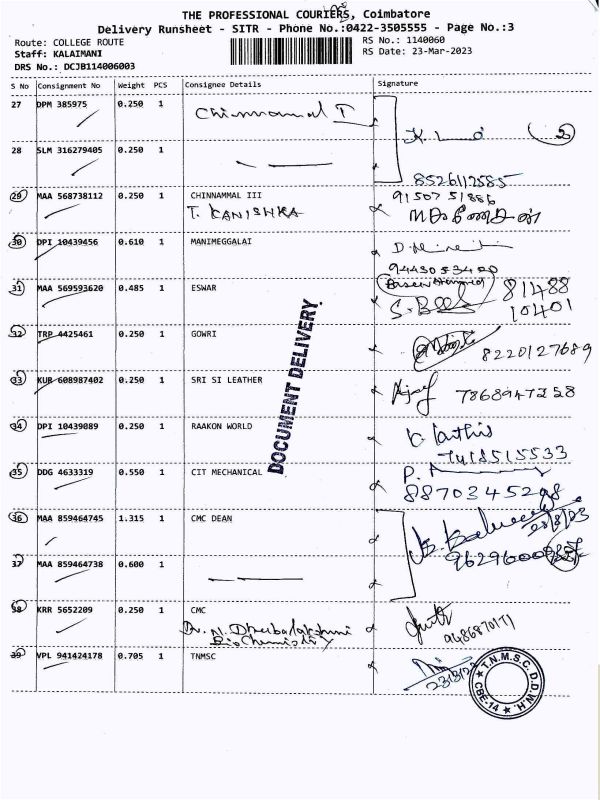 THE PROFESSIONAL COURIERS, Coimbatore
Delivery Runsheet - SITR - Phone No.:0422-3505555 - Page No.:3
Route: COLLEGE ROUTE
Staff: KALAIMANI
DRS No.: DCJB114006003
RS No.: 1140060
RS Date: 23-Mar-2023
S No Consignment No Weight PCS Consignee Details Signature
27 DPM 385975 0.250 1 Chinnammal I
28 SLM 316279405 0.250 1
8526112585
29 MAA 568738112 0.250 1 CHINNAMMAL III 9150751886
T. KANISHKA
30 DPI 10439456 0.610 1 MANIMEGGALAI
31 MAA 569593620 0.485 1 ESWAR 81488
10401
32 TRP 4425461 0.250 1 GOWRI
8220127689
33 KUR 608987402 0.250 1 SRI SI LEATHER
34 DPI 10439089 0.250 1 RAAKON WORLD
7418515533
35 DDG 4633319 0.550 1 CIT MECHANICAL
8870345298
36 MAA 859464745 1.315 1 CMC DEAN
37 MAA 859464738 0.600 1
38 KRR 5652209 0.250 1 CMC
Dr. N. Dhanalakshmi
BioChemistry
39 VPL 941424178 0.705 1 TNMSC
DOCUMENT DELIVERY
T.N.M.S.C. D.D.W.H.
CBE-14